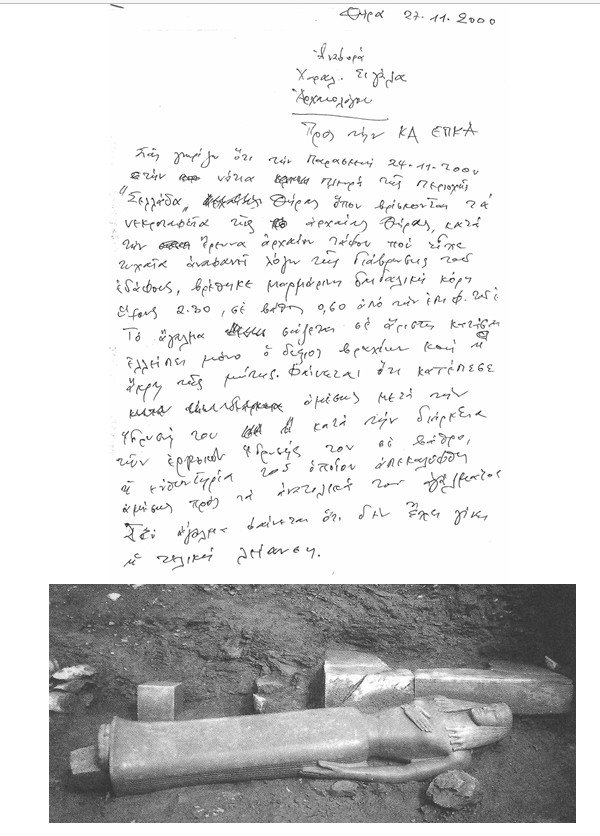 Θήρα 27.11.2000
Ἀναφορά
Χαραλ. Σιγάλα
Ἀρχαιολόγου
Πρός τήν ΚΑ ΕΠΚΑ
Σᾶς γνωρίζω ὅτι τήν Παρασκευή 24-11-2000
στήν νότια πλευρά τῆς περιοχῆς
"Σελλάδα" Θήρας ὅπου βρίσκονται τά
νεκροταφεῖα τῆς ἀρχαίας Θήρας, κατά
τήν ἔρευνα ἀρχαίου τάφου πού εἶχε
τυχαῖα ἀναφανεῖ λόγω τῆς διάβρωσης τοῦ
ἐδάφους, βρέθηκε μαρμάρινη δαιδαλική κόρη
ὕψους 2.30, σέ βάθος 0,60 ἀπό τήν ἐπιφ. τοῦ ἐ.
Τό ἄγαλμα σώζεται σέ ἄριστη κατάσ
ἐλλείπει μόνο ὁ δεξιός βραχίων καί ἡ
ἄκρη τῆς μύτης. Φαίνεται ὅτι κατέπεσε
ἀμέσως μετά τήν
ἵδρυσή του ἤ κατά τήν διάρκεια
τῶν ἐργασιῶν ἵδρυσής του σέ βάθρο,
ἡ εὐθυντηρία τοῦ ὁποίου ἀπεκαλύφθη
ἀμέσως πρός τά ἀνατολικά τοῦ ἀγάλματος
Στό ἄγαλμα φαίνεται ὅτι δέν ἔχει γίνει
ἡ τελική λείανση.